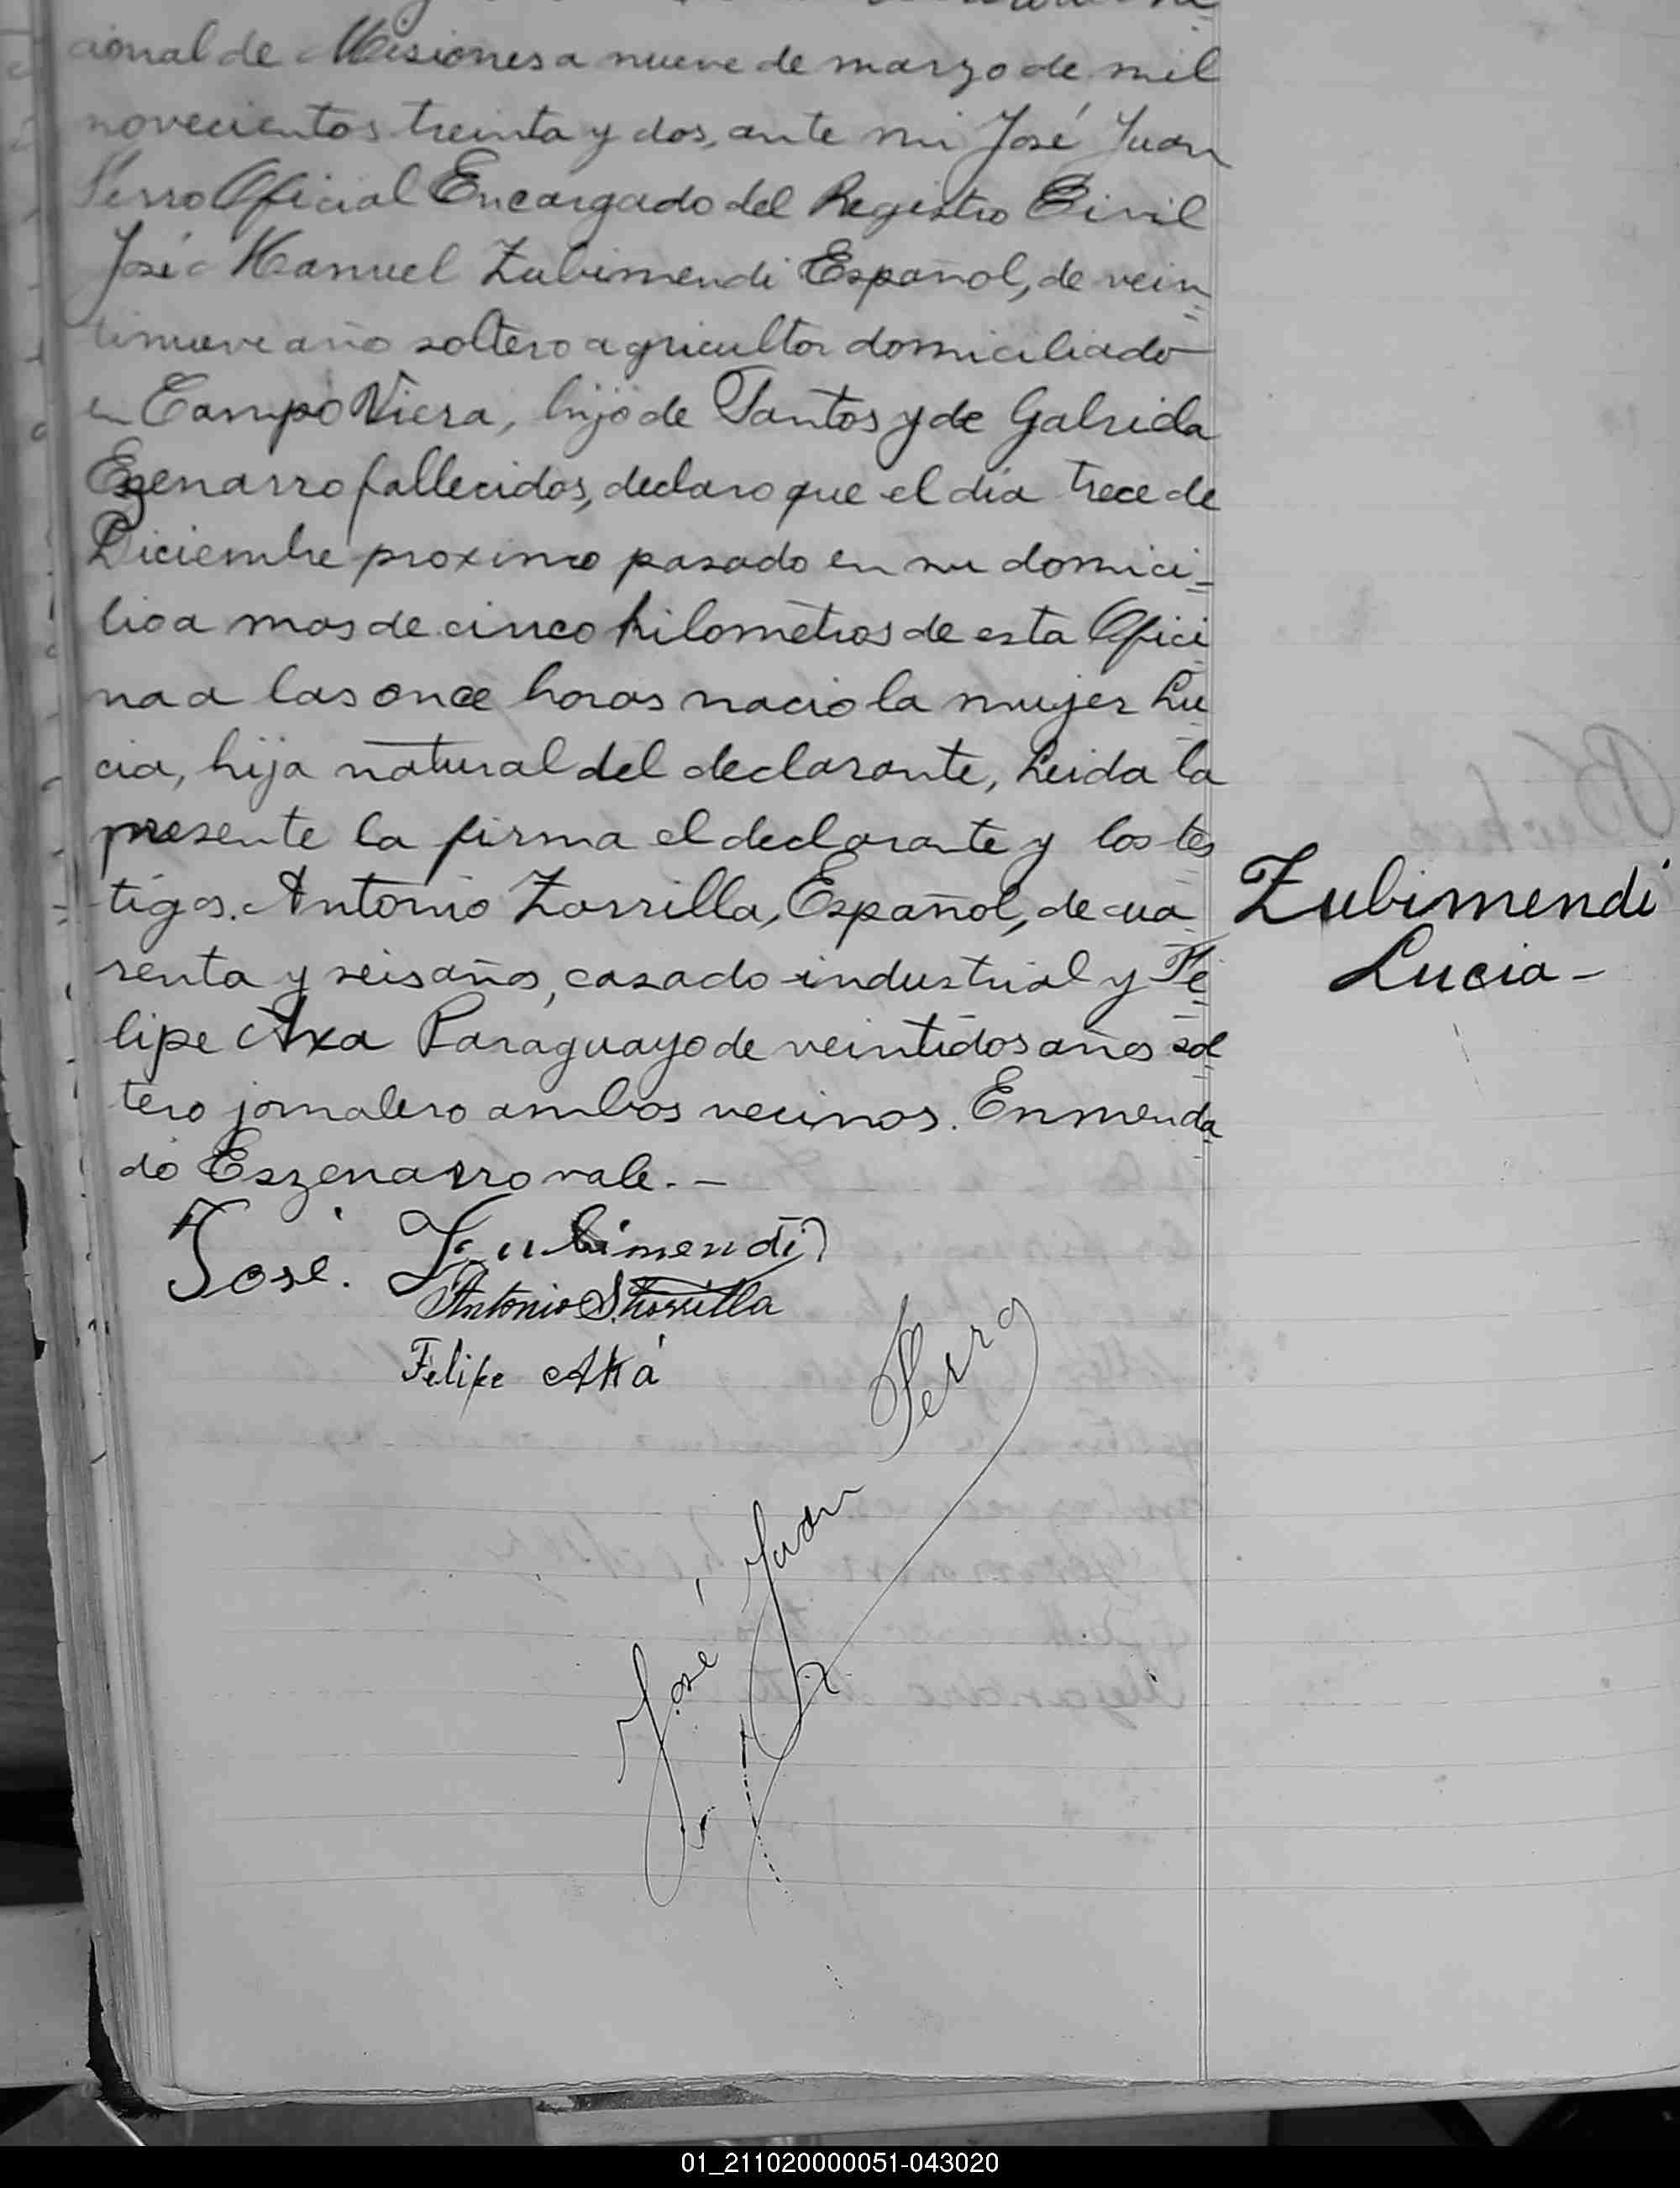 cional de Misiones a nueve de marzo de mil
novecientos treinta y dos, ante mi José Juan
Serro Oficial Encargado del Registro Civil
José Manuel Zubimendi Español, de vein
tinueve año soltero agricultor domiciliado
en Campo Viera, hijo de Santos y de Gabriela
Ezenarro fallecidos, declaro que el día trece de
Diciembre proximo pasado en su domici-
lio a mas de cinco kilometros de esta Ofici
na a las once horas nacio la mujer Lu
cia, hija natural del declarante, Leida la
presente la firma el declarante y los tes
tigos. Antonio Zorrilla, Español, de cua
renta y seis años, casado industrial y Fe
lipe Axa Paraguayo de veintidos años sol
tero jornalero ambos vecinos. Enmenda
do Eszenarro vale. -
Zubimendi
Lucia -
José. Zubimendi
Antonio Zorrilla
Felipe Aká
José Juan Serro
01_211020000051-043020